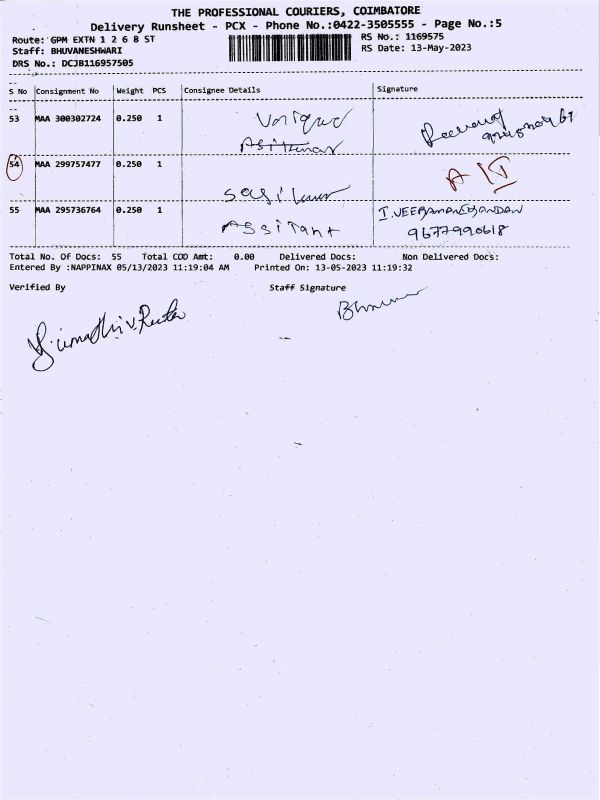 THE PROFESSIONAL COURIERS, COIMBATORE
Delivery Runsheet - PCX - Phone No.:0422-3505555 - Page No.:5
Route: GPM EXTN 1 2 6 8 ST
RS No.: 1169575
Staff: BHUVANESHWARI
RS Date: 13-May-2023
DRS No.: DCJB116957505
S No Consignment No Weight PCS Consignee Details Signature
53 MAA 300302724 0.250 1
54 MAA 299757477 0.250 1
55 MAA 295736764 0.250 1 Assitant I.VEERAMANICHANDAN
9677990618
Total No. Of Docs: 55 Total COD Amt: 0.00 Delivered Docs: Non Delivered Docs:
Entered By :NAPPINAX 05/13/2023 11:19:04 AM Printed On: 13-05-2023 11:19:32
Verified By Staff Signature